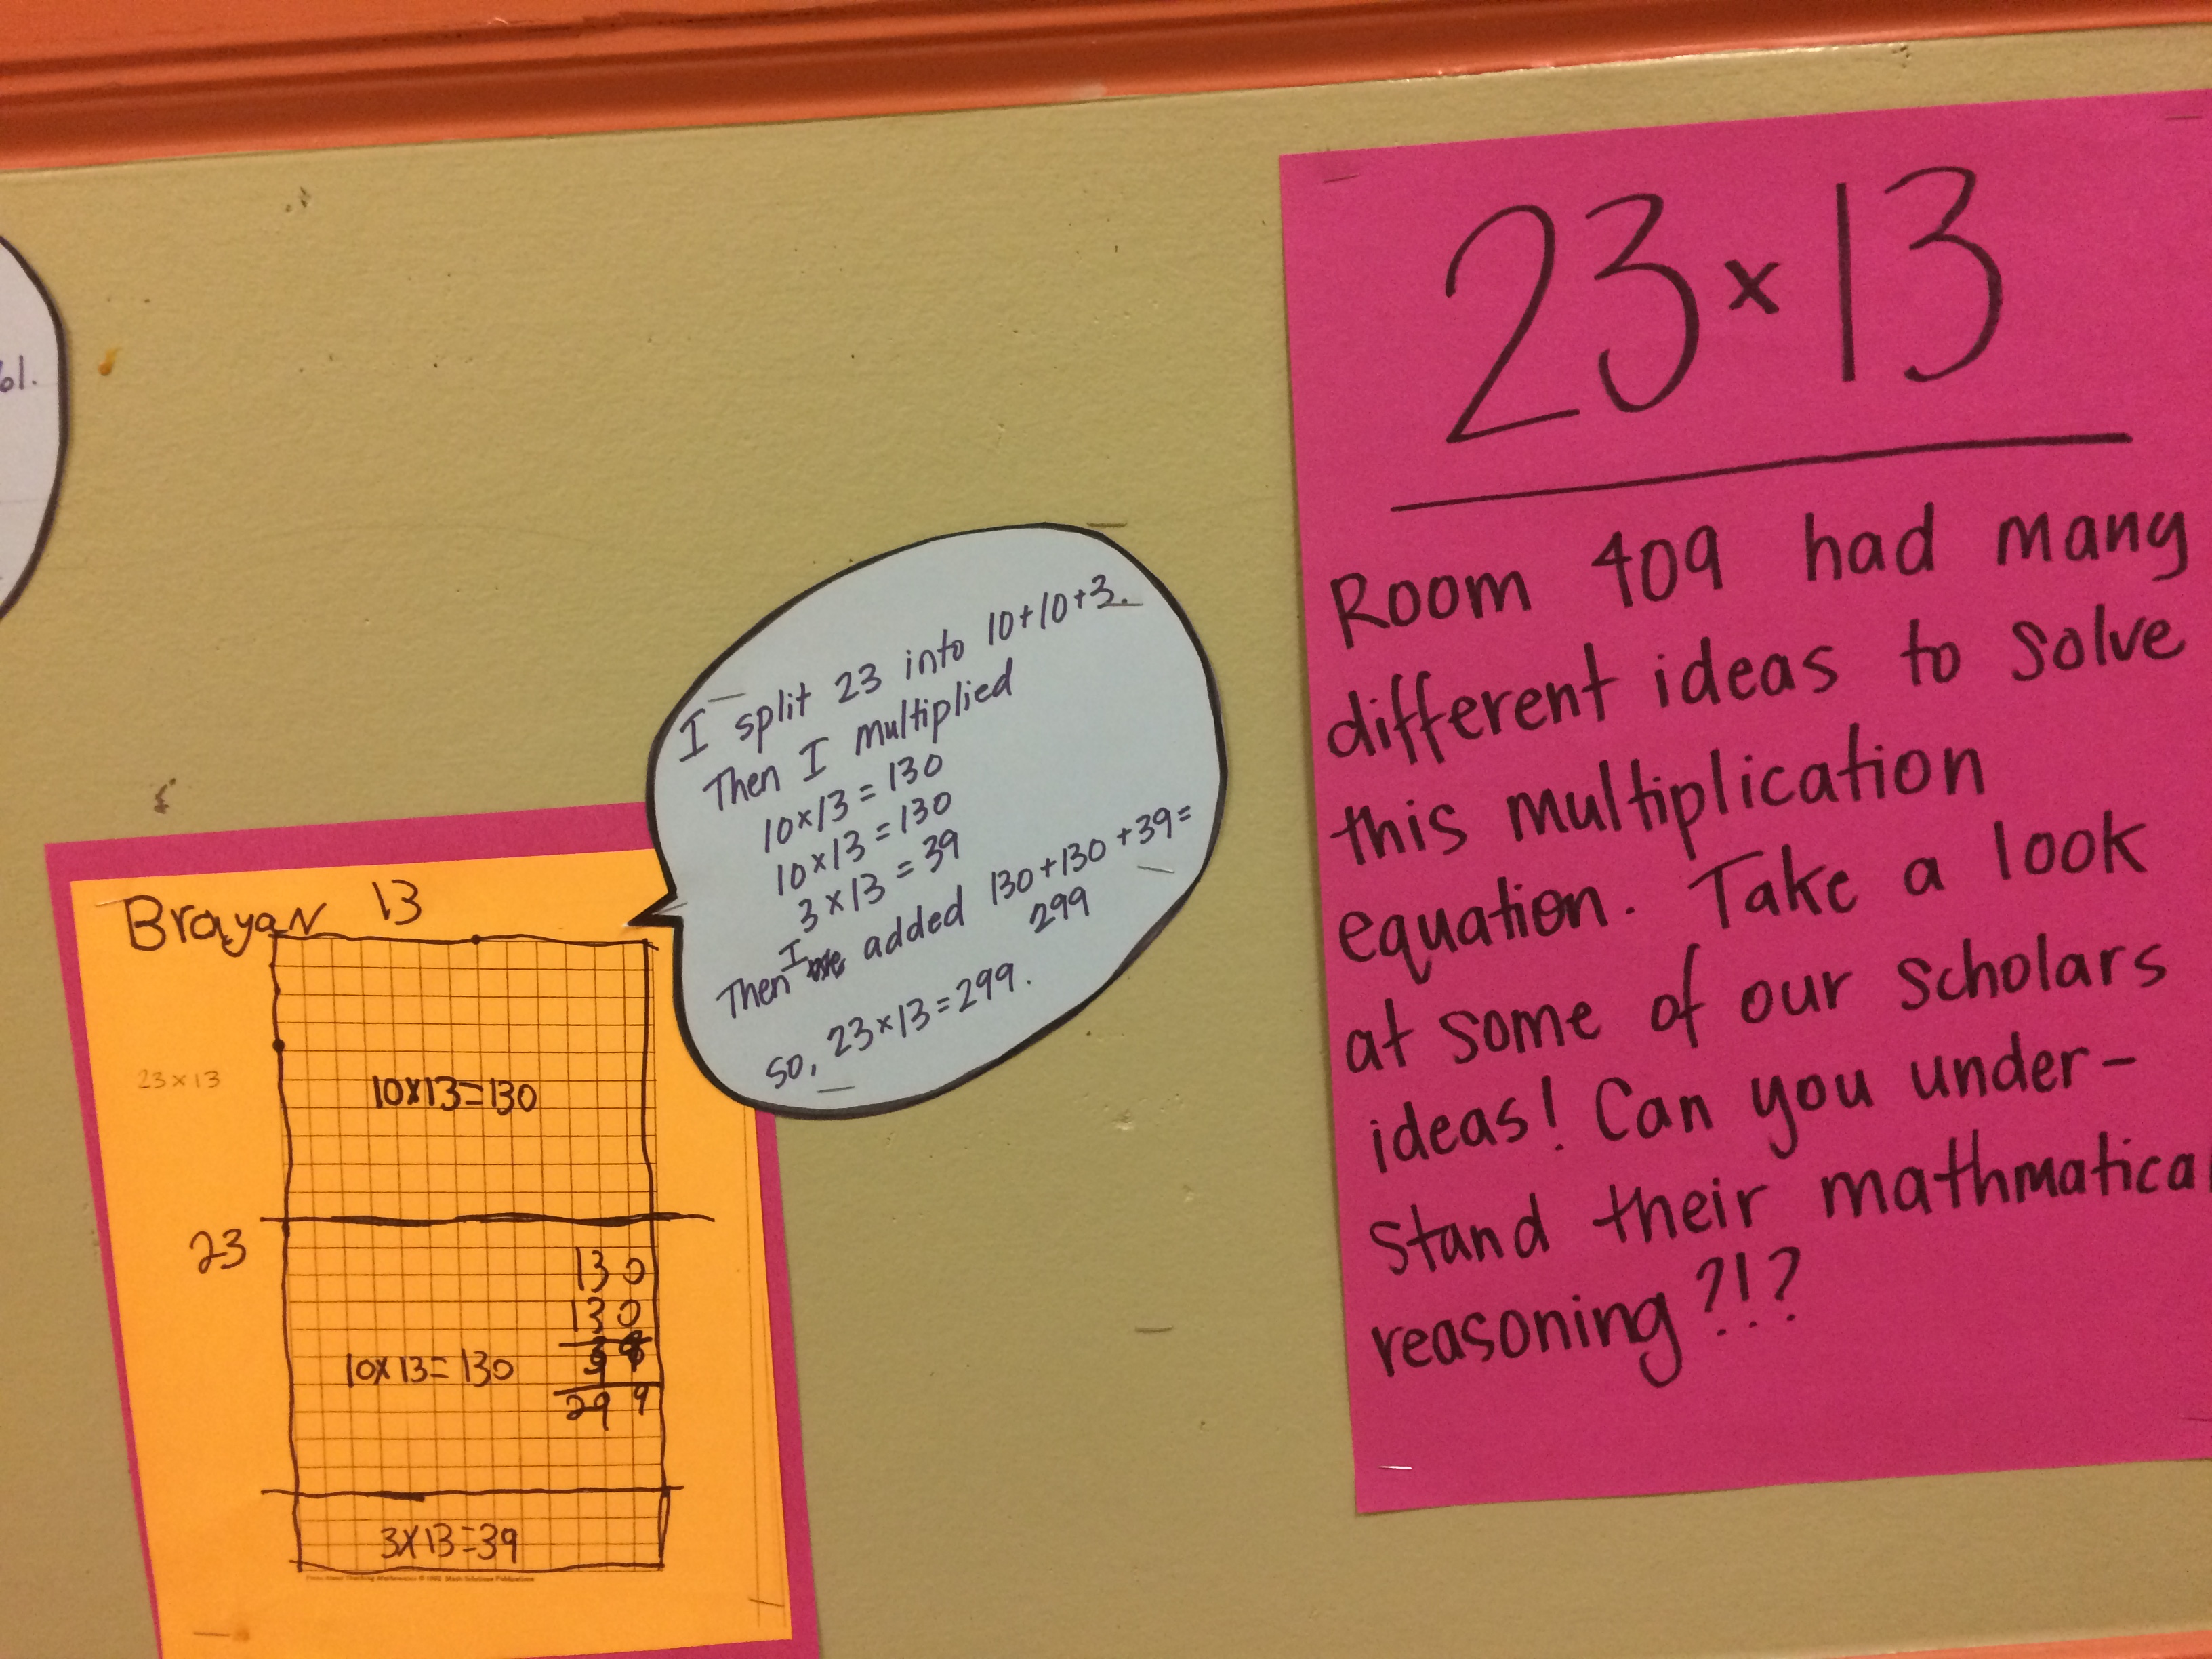 61.
23 × 13
Room 409 had many
different ideas to solve
this multiplication
equation. Take a look
at some of our scholars
ideas! Can you under-
stand their mathmatical
reasoning?!?
I split 23 into 10+10+3.
Then I multiplied
10×13=130
10×13=130
3×13=39
Then I added 130+130+39=
299
So, 23×13=299.
Brayan 13
23×13
10×13=130
23
130
130
39
299
10×13=130
3×13=39